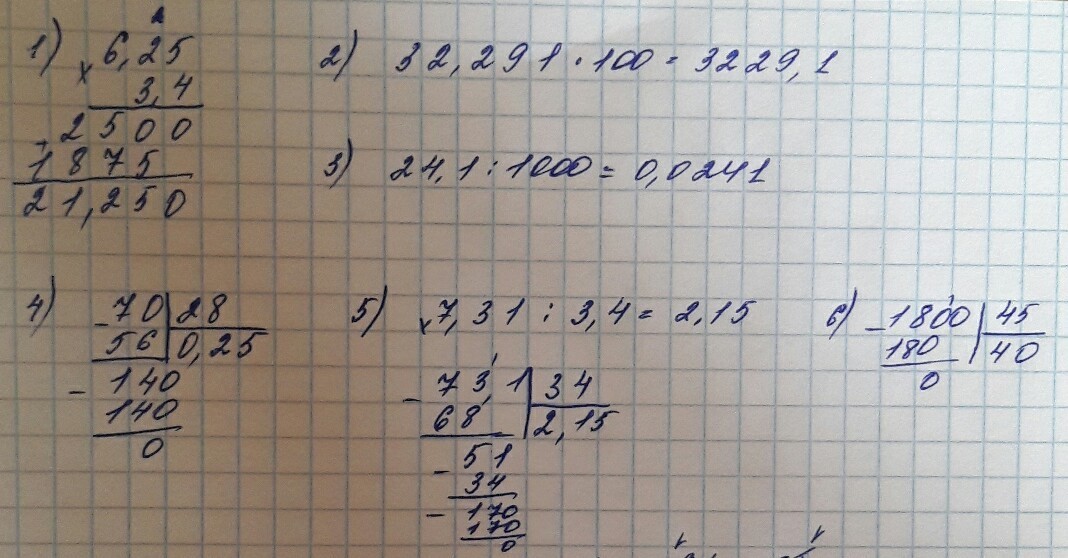 1) 2
× 6,25
3,4
2500
1875
21,250
2) 32,291 · 100 = 3229,1
3) 24,1 : 1000 = 0,0241
4) - 70 | 28
56 | 0,25
- 140
140
0
5) 7,31 : 3,4 = 2,15
- 73,1 | 34
68 | 2,15
- 51
34
- 170
170
0
6) - 1800 | 45
180 | 40
0